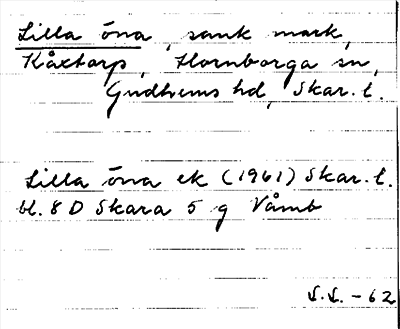 Lilla öna, sank mark,
Kåxtorp, Hornborga sn,
Gudhems hd, Skar. l.
Lilla öna ek (1961) Skar. l.
bl. 8 D Skara 5 g Våmb
L.L. -62